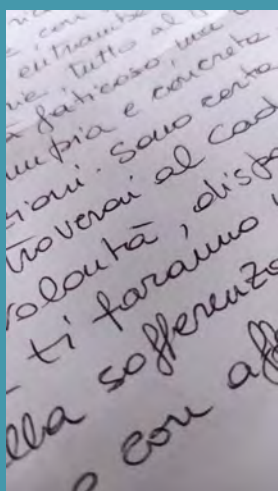 e con
entrambi
tutto al
faticoso, ma
e concreta
zioni. Sono certa
troverai al Cad
volontà, dispo
ti faranno
lla sofferenza
e con aff